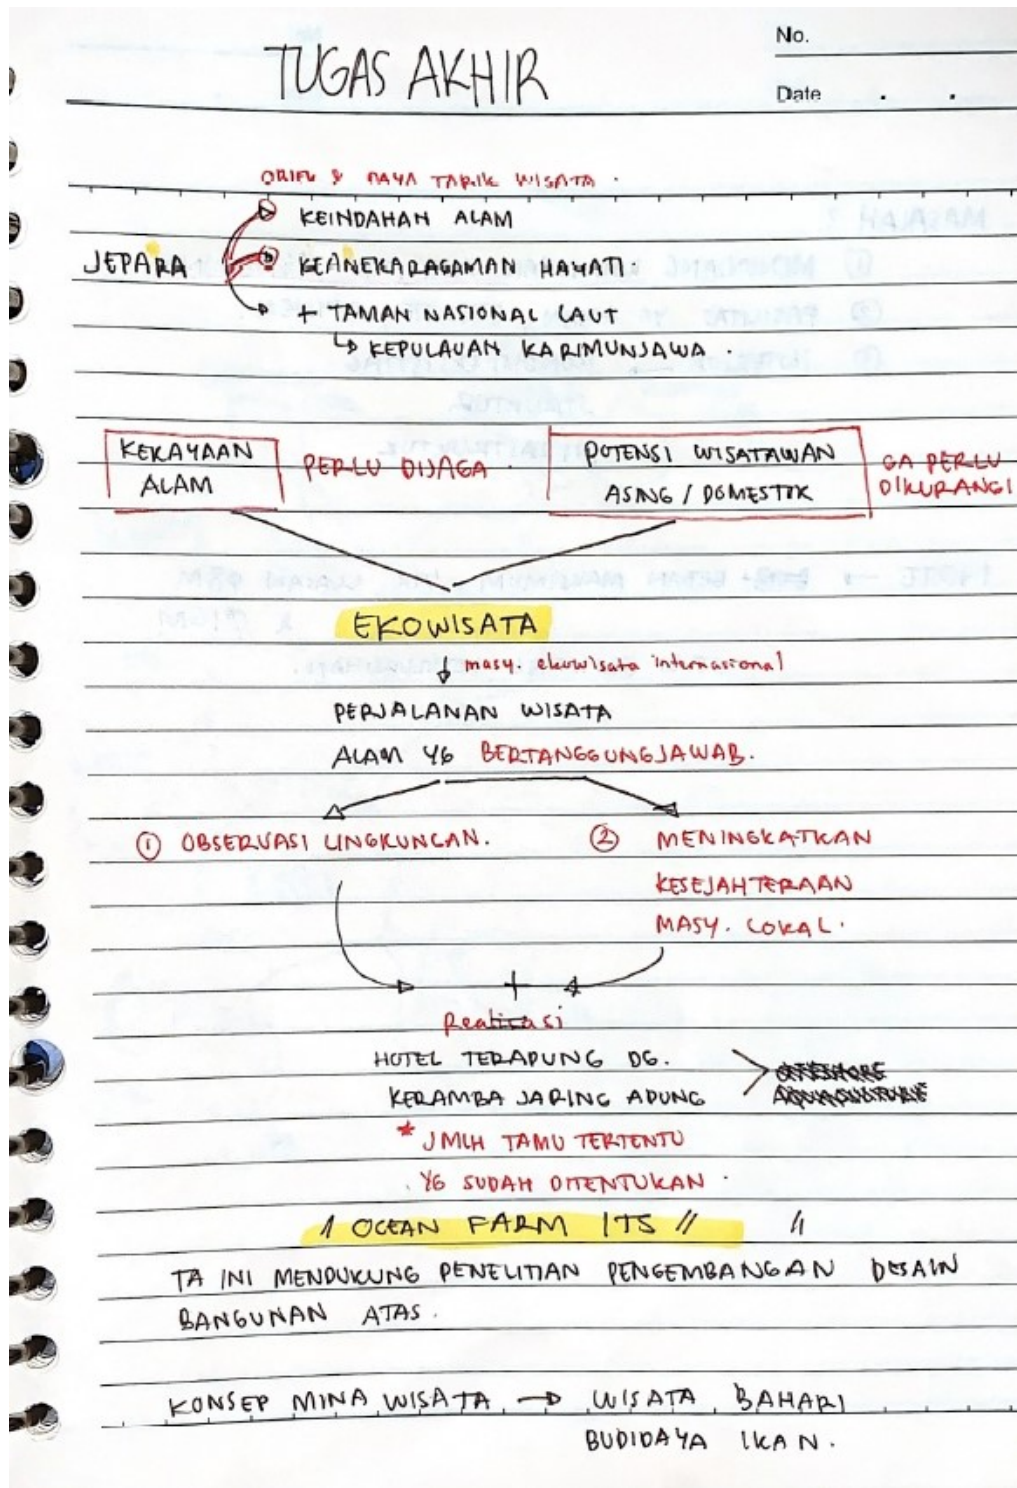 No.
TUGAS AKHIR
Date . .
& DAYA TARIK WISATA.
KEINDAHAN ALAM
JEPARA KEANEKARAGAMAN HAYATI.
+ TAMAN NASIONAL LAUT
↳ KEPULAUAN KARIMUNJAWA.
KEKAYAAN ALAM PERLU DIJAGA.
POTENSI WISATAWAN ASING / DOMESTIK GA PERLU DIKURANGI
EKOWISATA
↓ masy. ekowisata internasional
PERJALANAN WISATA
ALAM YG BERTANGGUNGJAWAB.
① OBSERVASI LINGKUNGAN.
② MENINGKATKAN
KESEJAHTERAAN
MASY. LOKAL.
+
Realisasi
HOTEL TERAPUNG DG.
KERAMBA JARING APUNG
* JMLH TAMU TERTENTU
YG SUDAH DITENTUKAN.
1 OCEAN FARM ITS // //
TA INI MENDUKUNG PENELITIAN PENGEMBANGAN DESAIN
BANGUNAN ATAS.
KONSEP MINA WISATA → WISATA BAHARI
BUDIDAYA IKAN.